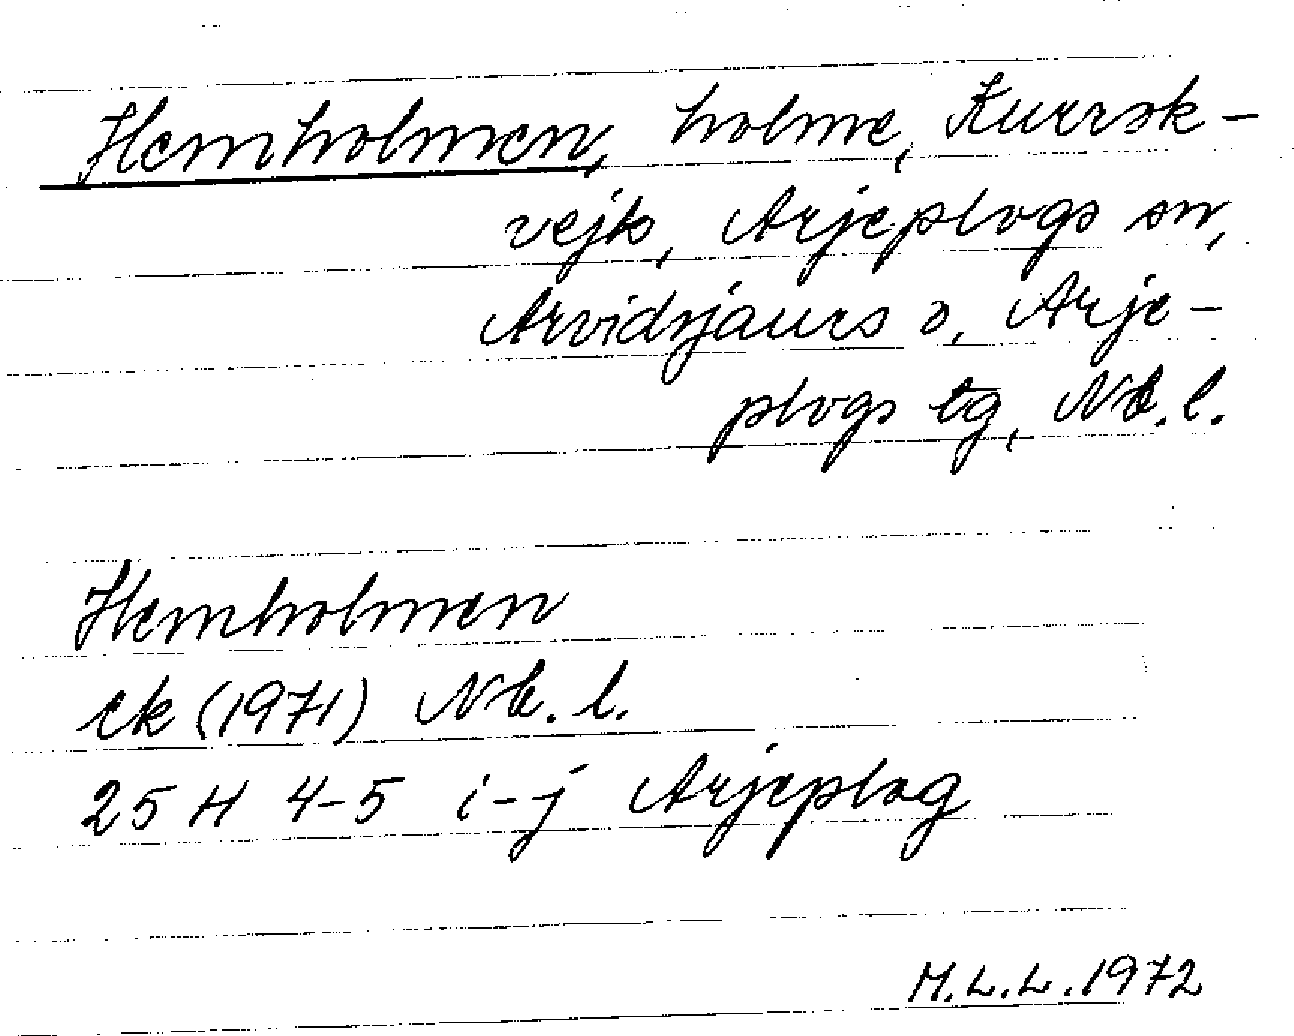 Hemholmen, holme, Kurrok-
vejk, Arjeplogs sn,
Arvidsjaurs o, Arje-
plogs tg, Nb. l.
Hemholmen
ek (1971) Nb. l.
25 H 4-5 i-j Arjeplog
M.L.L. 1972